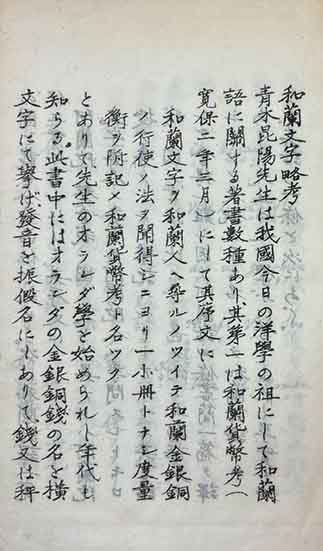 和蘭文字略考
青木昆陽先生は我國今日の洋學の祖にして和蘭
語に關する著書數種あり、其第一は和蘭貨幣考(
寬保二年三月)にして其序文に
和蘭文字ヲ和蘭人ヘ尋ルノツイテ和蘭金銀銅
ノ行使ノ法ヲ聞得シニヨリ一小冊トナシ度量
衡ヲ附記メ和蘭貨幣考ト名ツク
とありて先生のオランダ學を始められし年代も
知らる。此書中にはオランダの金銀銅錢の名を橫
文字にて擧げ、發音を振假名にしありて錢又は秤